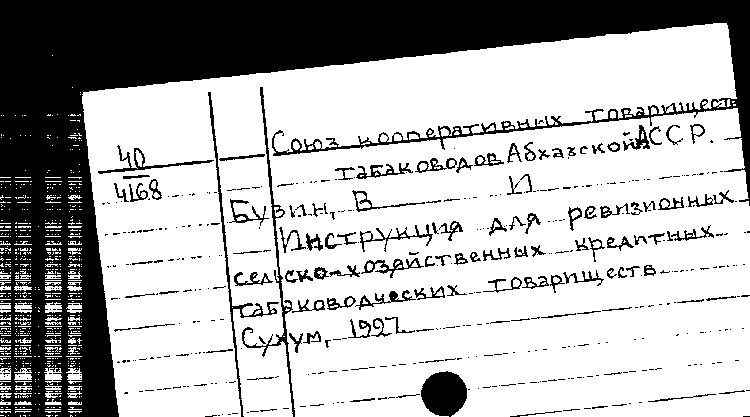 40
4168
Союз кооперативных товариществ
табаководов Абхазской АССР.
Бузин, В И
Инструкция для ревизионных
сельско-хозяйственных кредитных
табаководческих товариществ
Сухум, 1927